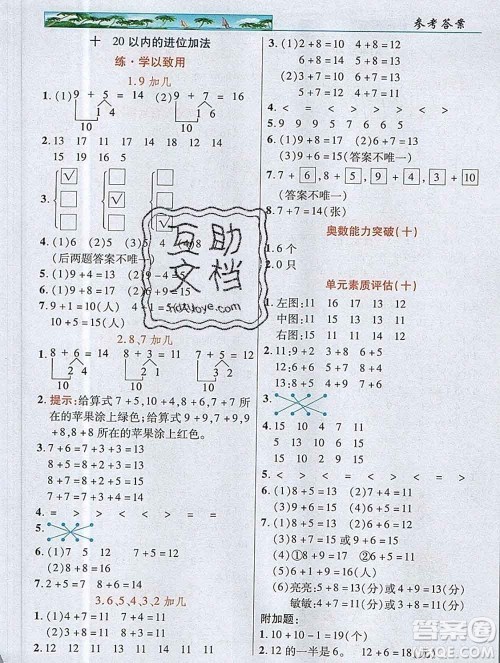 参考答案
十 20以内的进位加法
练·学以致用
1.9加几
1.(1)9+5=14 (2)9+7=16
1 4 1 6
10 10
2.13 17 11 15 18 14 12
15 19 16 5
3.
4.(1)6 (2)5
(后两题答案不唯一)
5.(1)9+4=13 (2)9-5=
7.9+1=10(人)
10+5=15(人)
2.8,7加几
1. 8+6=14 8+3=11 7+5=12
2 4 2 1 3 2
10 10 10
2.提示:给算式7+5,10+4,8+6,7+7,6+7所
在的苹果涂上绿色;给算式9+9,7+9,9+
,8+8所在的苹果涂上红色。
3.7+6=13
7+7=14
8+5=13
8+8=16
4.= > < = > < >
5.
1.(1)7 5 12 7+5=12
2.7+5=12 8+6=14
3.6,5,4,3,2加几
1.(1)4+7=11
2.(1)5+7=12
3.(1)2+8=10 4+7=11
5+8=13 6+8=14
(2)6+7=13 8+7=15
5+7=12 7+7=14
4.< = < > > > < =
5.9 9 5 7 5 6 8 9
6.(1)9+8=17 (2)6+5=11
(3)9+7=16(答案不唯一)
7.7+6,8+5,9+4,3+10
(答案不唯一)
8.7+7=14(张)
奥数能力突破(十)
1.6个
2.0只
单元素质评估(十)
1.左图:11 16 17 13 12
中图:11 15 12 13 14
右图:11 15 12 13 14
2.11:9+2 8+3 7+4
12:9+3 8+4 7+5
13:9+4 8+5 7+6
3.
4.15 10 4 9 13 9
12 12 17 11 15 18
5.< > < < > >
6.(1)3+8=11 (2)4+7=11
7.(1)9+8=17 (2)9+7=16
(3)8+5=13
(4)①8+9=17 ②7+4=11
(5)6+6=12
(6)亮亮:5+8=13(分)或4+9=13(分)
敏敏:4+7=11(分)或3+8=11(分)
附加题:
1.10+10-1=19(个)
2.12的一半是6。 12+6=18
互助
文档